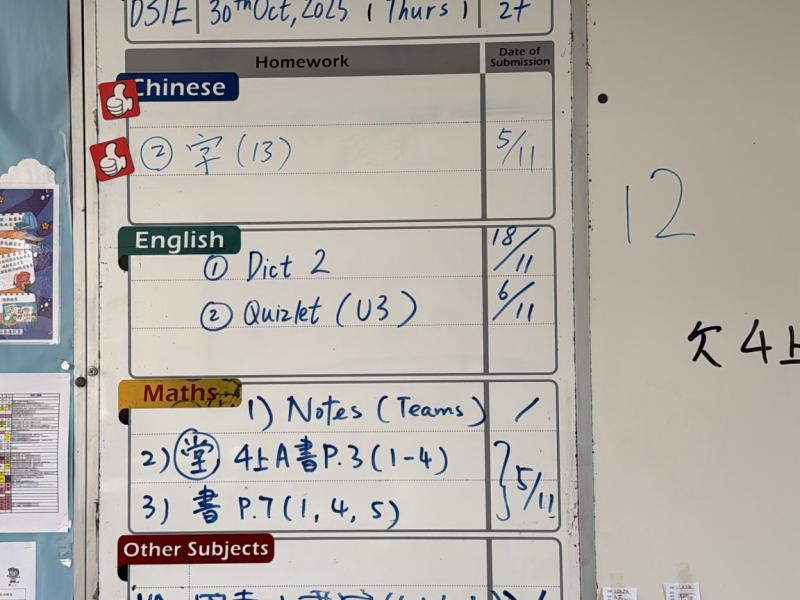 DATE 30th Oct, 2025 (Thurs) 27
Homework Date of Submission
Chinese
② 字 (13) 5/11
English
① Dict 2 18/11
② Quizlet (U3) 6/11
Maths
1) Notes (Teams) /
2) 堂 4上A書P.3 (1-4) } 5/11
3) 書 P.7 (1, 4, 5)
Other Subjects
12
欠 4上